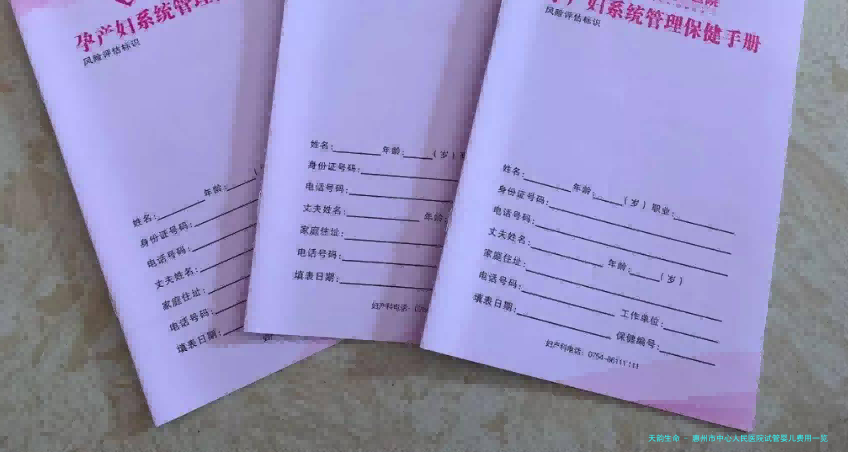 孕产妇系统管理
风险评估标识
姓名: 年龄:
身份证号码:
电话号码:
丈夫姓名:
家庭住址:
电话号码:
填表日期:
姓名: 年龄: (岁)
身份证号码:
电话号码:
丈夫姓名: 年龄:
家庭住址:
电话号码:
填表日期:
妇产科电话:
孕产妇系统管理保健手册
风险评估标识
姓名: 年龄: (岁) 职业:
身份证号码:
电话号码:
丈夫姓名: 年龄: (岁)
家庭住址:
电话号码: 工作单位:
填表日期: 保健编号:
妇产科电话: 0754-86111111
天韵生命 - 惠州市中心人民医院试管婴儿费用一览